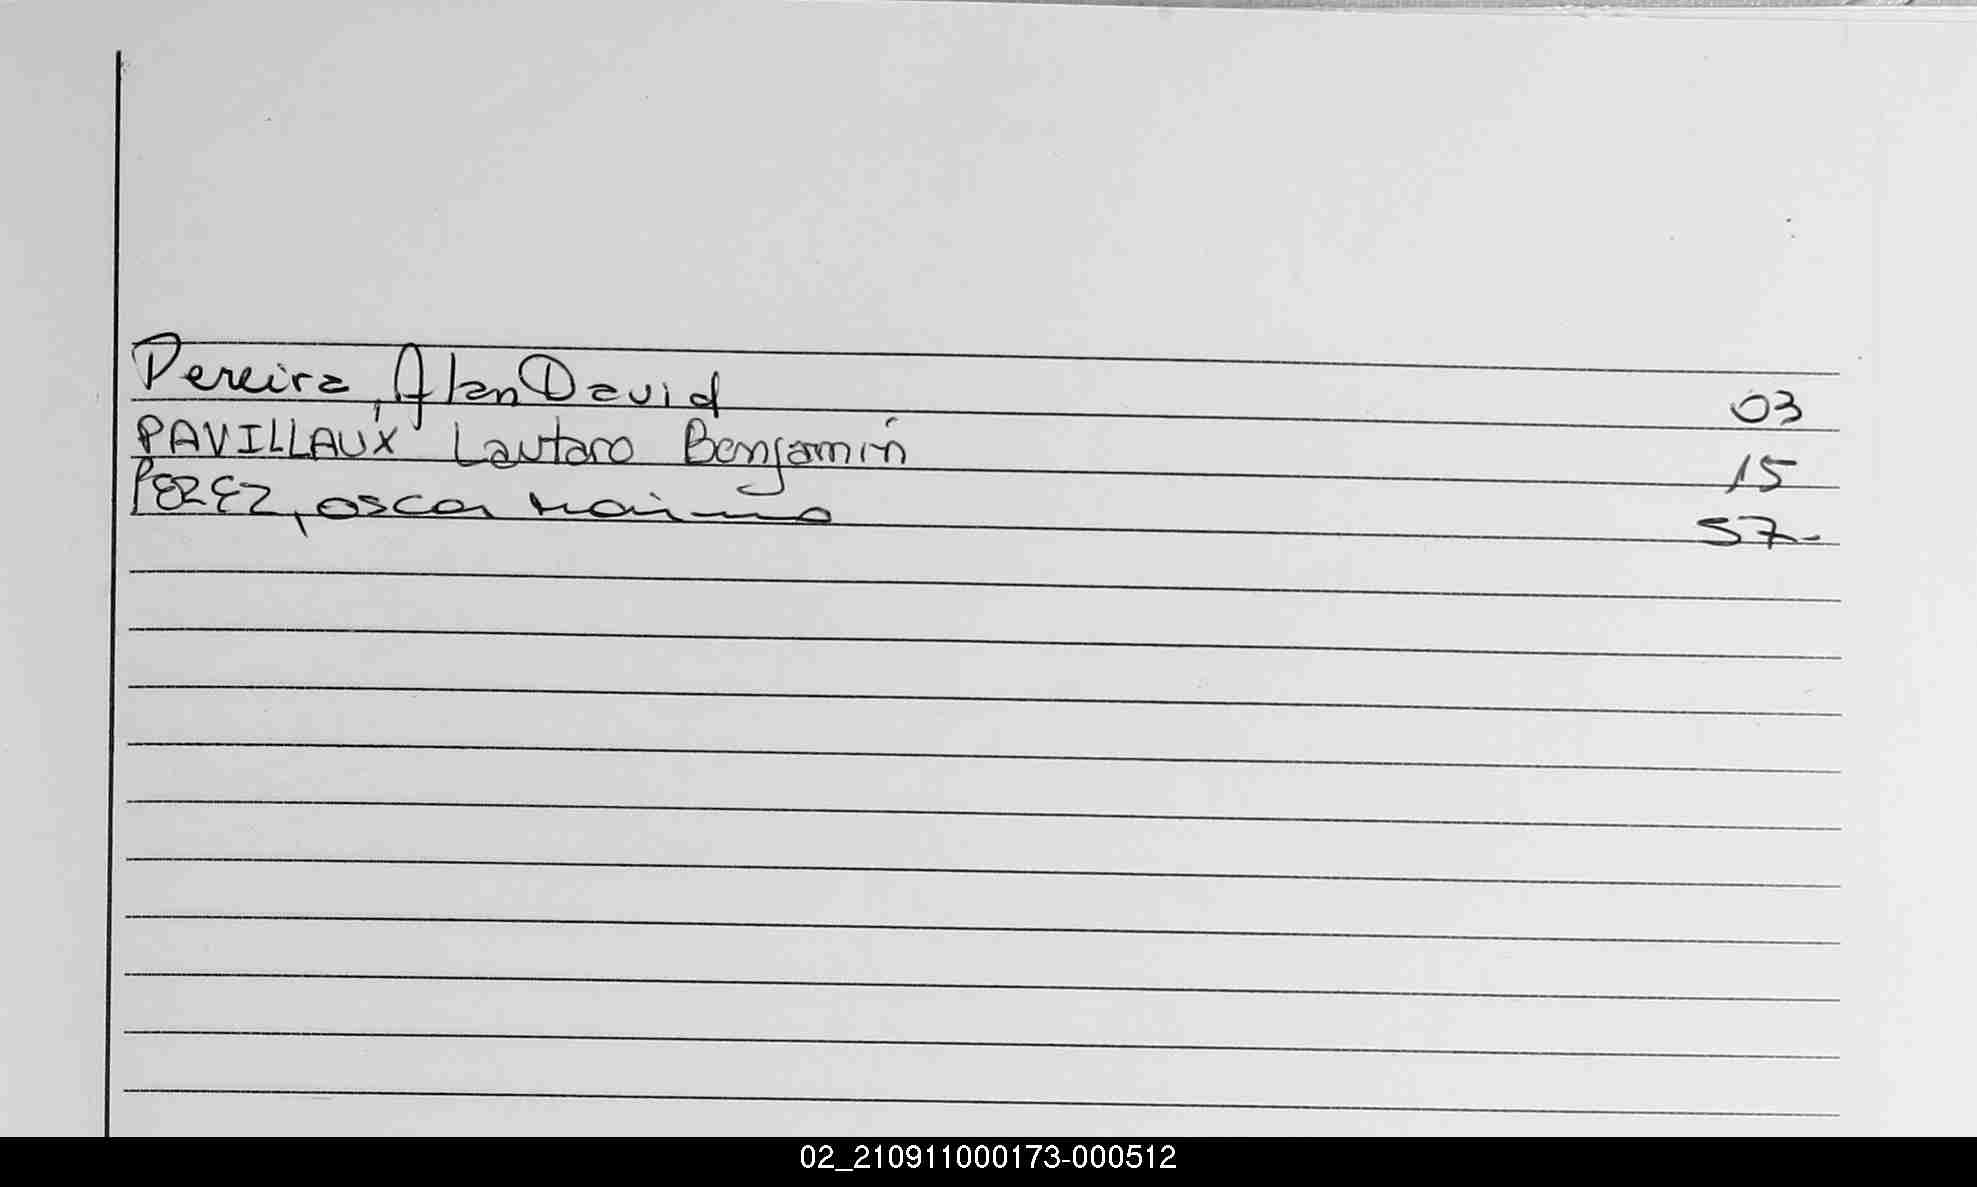 Pereira, Alan David 03
PAVILLAUX Lautaro Benjamín 15
PEREZ, oscar maximo 57-
02_210911000173-000512